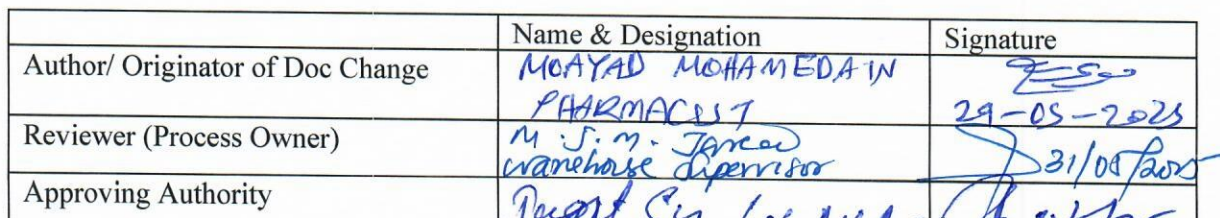 Name & Designation Signature
Author/ Originator of Doc Change MOAYAD MOHAMEDAIN
PHARMACIST 29-05-2025
Reviewer (Process Owner) M.S.M.
warehouse supervisor 31/05/2025
Approving Authority